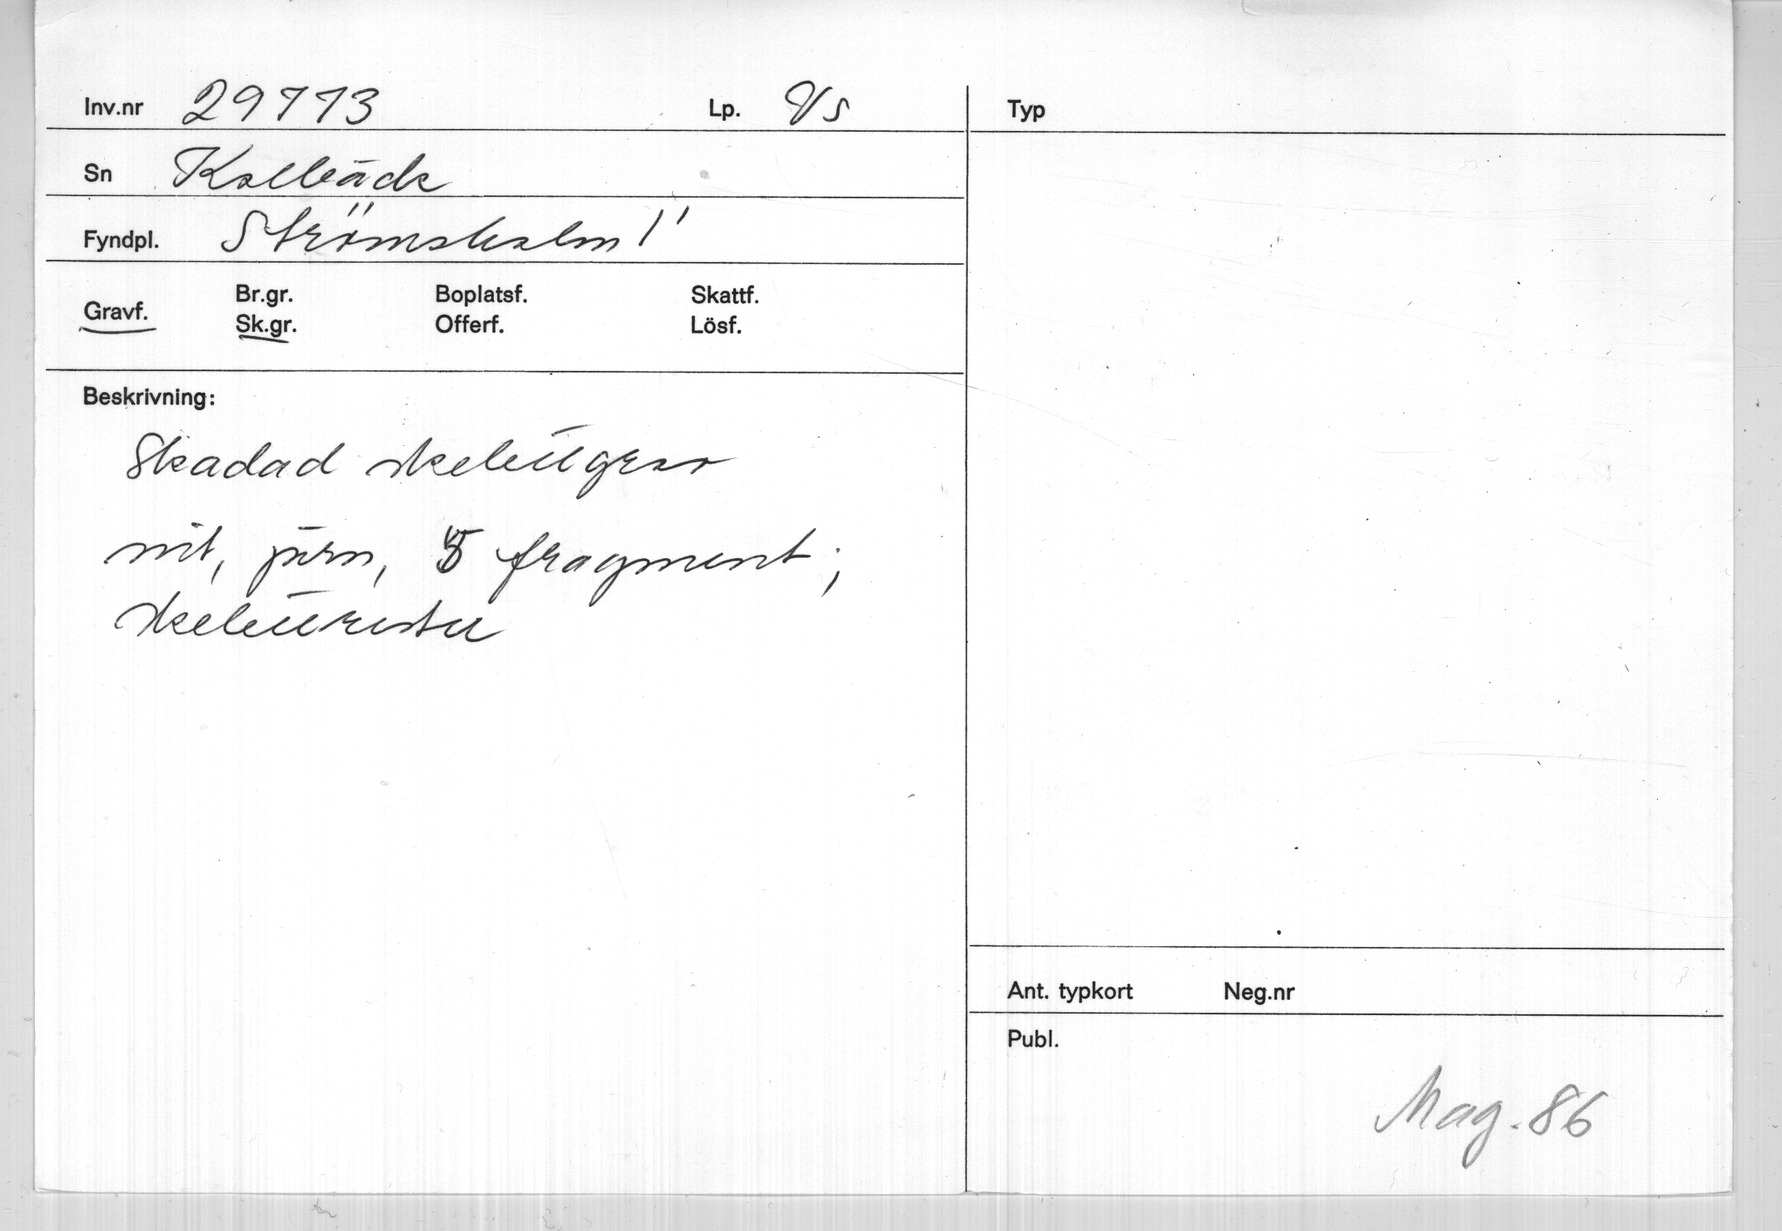 Inv.nr 29773 Lp. Vs
Sn Kolbäck
Fyndpl. Strömsholm 1'
Gravf. Br.gr. Boplatsf. Skattf.
Sk.gr. Offerf. Lösf.
Beskrivning:
Skadad skelettgrav
nit, järn, 5 fragment;
skelettrester
Typ
Ant. typkort Neg.nr
Publ.
Mag. 86